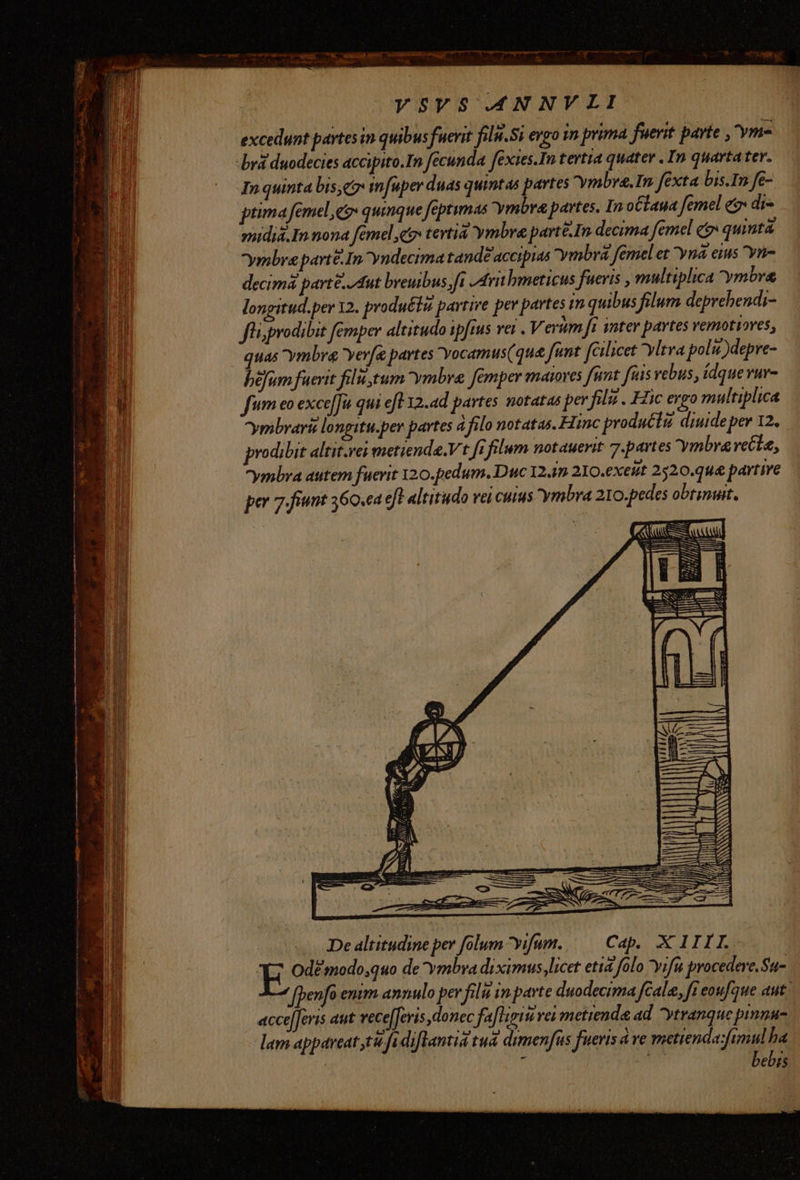 VSVS ANNVLI
excedunt partes in quibus fuerit filũ. Si ergo in prima fuerit parte, vm-
brã duodecies accipito. In secunda sexies. In tertia quater. In quarta ter.
In quinta bis, & insuper duas quintas partes vmbræ. In sexta bis. In se-
ptima semel, & quinque septimas vmbræ partes. In octaua semel & di-
midiã. In nona semel, & tertiã vmbræ partẽ. In decima semel & quintã
vmbræ partẽ. In vndecima tandẽ accipias vmbrã semel et vnã eius vn-
decimã partẽ. Aut breuibus, si Arithmeticus fueris, multiplica vmbræ
longitud. per 12. productũ partire per partes in quibus filum deprehendi-
sti, prodibit semper altitudo ipsius rei. Verùm si inter partes remotiores,
quas vmbræ versæ partes vocamus (quæ sunt scilicet vltra polũ) depre-
hẽsum fuerit filũ, tum vmbræ semper maiores sunt suis rebus, idque rur-
sum eo excessu qui est 12. ad partes notatas per filũ. Hic ergo multiplica
vmbrarũ longitu. per partes à filo notatas. Hinc productũ diuide per 12.
prodibit altit. rei metiendæ. Vt si filum notauerit 7. partes vmbræ rectæ,
vmbra autem fuerit 120. pedum. Duc 12. in 210. exeũt 2520. quæ partire
per 7. fiunt 360. ea est altitudo rei cuius vmbra 210. pedes obtinuit.
De altitudine per solum visum. Cap. XIIII.
Eodẽ modo, quo de vmbra diximus, licet etiã solo visu procedere. Su-
spenso enim annulo per filũ in parte duodecima scalæ, si eousque aut
accesseris aut recesseris, donec fastigiũ rei metiendæ ad vtranque pinnu-
lam appareat, tũ si distantiã tuã dimensus fueris à re metienda: simul ha
bebis